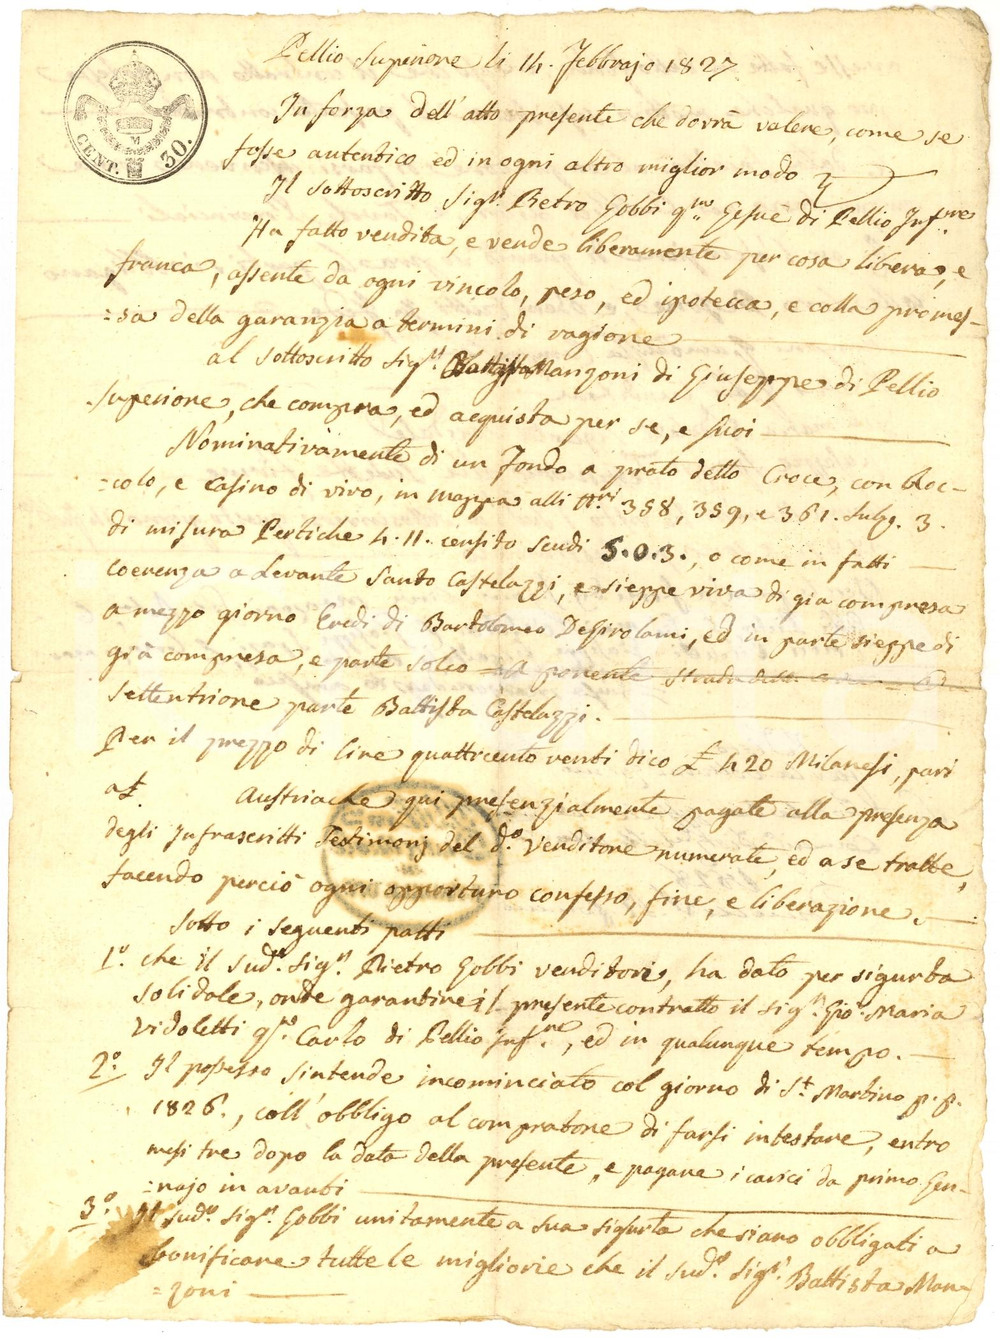 Pellio Superiore li 14. Febbrajo 1827
CENT. 30.
M
In forza dell'atto presente che dovrà valere, come se
fosse autentico ed in ogni altro miglior modo
Il sottoscritto Sigr. Pietro Gobbi qm Gesuè di Pellio Infre
Ha fatto vendita, e vende liberamente per cosa libera, e
franca, assente da ogni vincolo, peso, ed ipoteca, e colla promes-
=sa della garanzia a termini di ragione
al sottoscritto Sigr. Battista Mangoni di Giuseppe di Pellio
Superiore, che compra, ed acquista per se, e Suoi
Nominativamente di un Fondo a prato detto Croce, con bloc-
=colo, e Casino di vivo, in mappa alli Nri 358, 359, e 361. Subg. 3.
di misura Pertiche 4. 11. censito scudi 5.0.3., o come in fatti
coerenza a Levante Santo Castelazzi, e sieppe viva di già compresa
a mezzo giorno Eredi di Bartolomeo DeGirolami, ed in parte sieppe di
già compresa, e parte solco = A ponente strada
settentrione parte Battista Castelazzi.
Per il prezzo di lire quattricento venti dico £ 420 Milanesi, pari
a £. Austriache qui presenzialmente pagate alla presenza
degli Infrascritti Testimonj del do. Venditore numerate, ed a se tratte,
facendo perciò ogni opporturo confesso, fine, e liberazione.
Sotto i seguenti patti
1o. che il sudo. Sigr. Pietro Gobbi venditore, ha dato per sigurtà
solidale, onde garantire il presente contratto il Sigr. Gio. Maria
Vidoletti qm Carlo di Pellio Infre, ed in qualunque tempo.
2o. Il possesso s'intende incominciato col giorno di St. Martino p. p.
1826., coll'obbligo al compratore di farsi intestare, entro
mesi tre dopo la data della presente, e pagare i carici da primo Gen-
=najo in avanti
3o. Il sudo. Sigr. Gobbi unitamente a sua sigurtà che siano obbligati a
bonificare tutte le migliorie che il sudo. Sigr. Battista Man-
=zoni